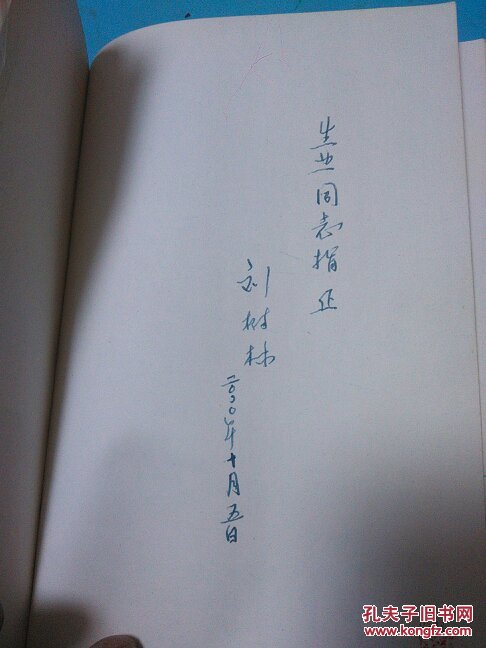 生业同志指正
刘树林
二〇〇〇年十月五日
孔夫子旧书网
www.kongfz.com